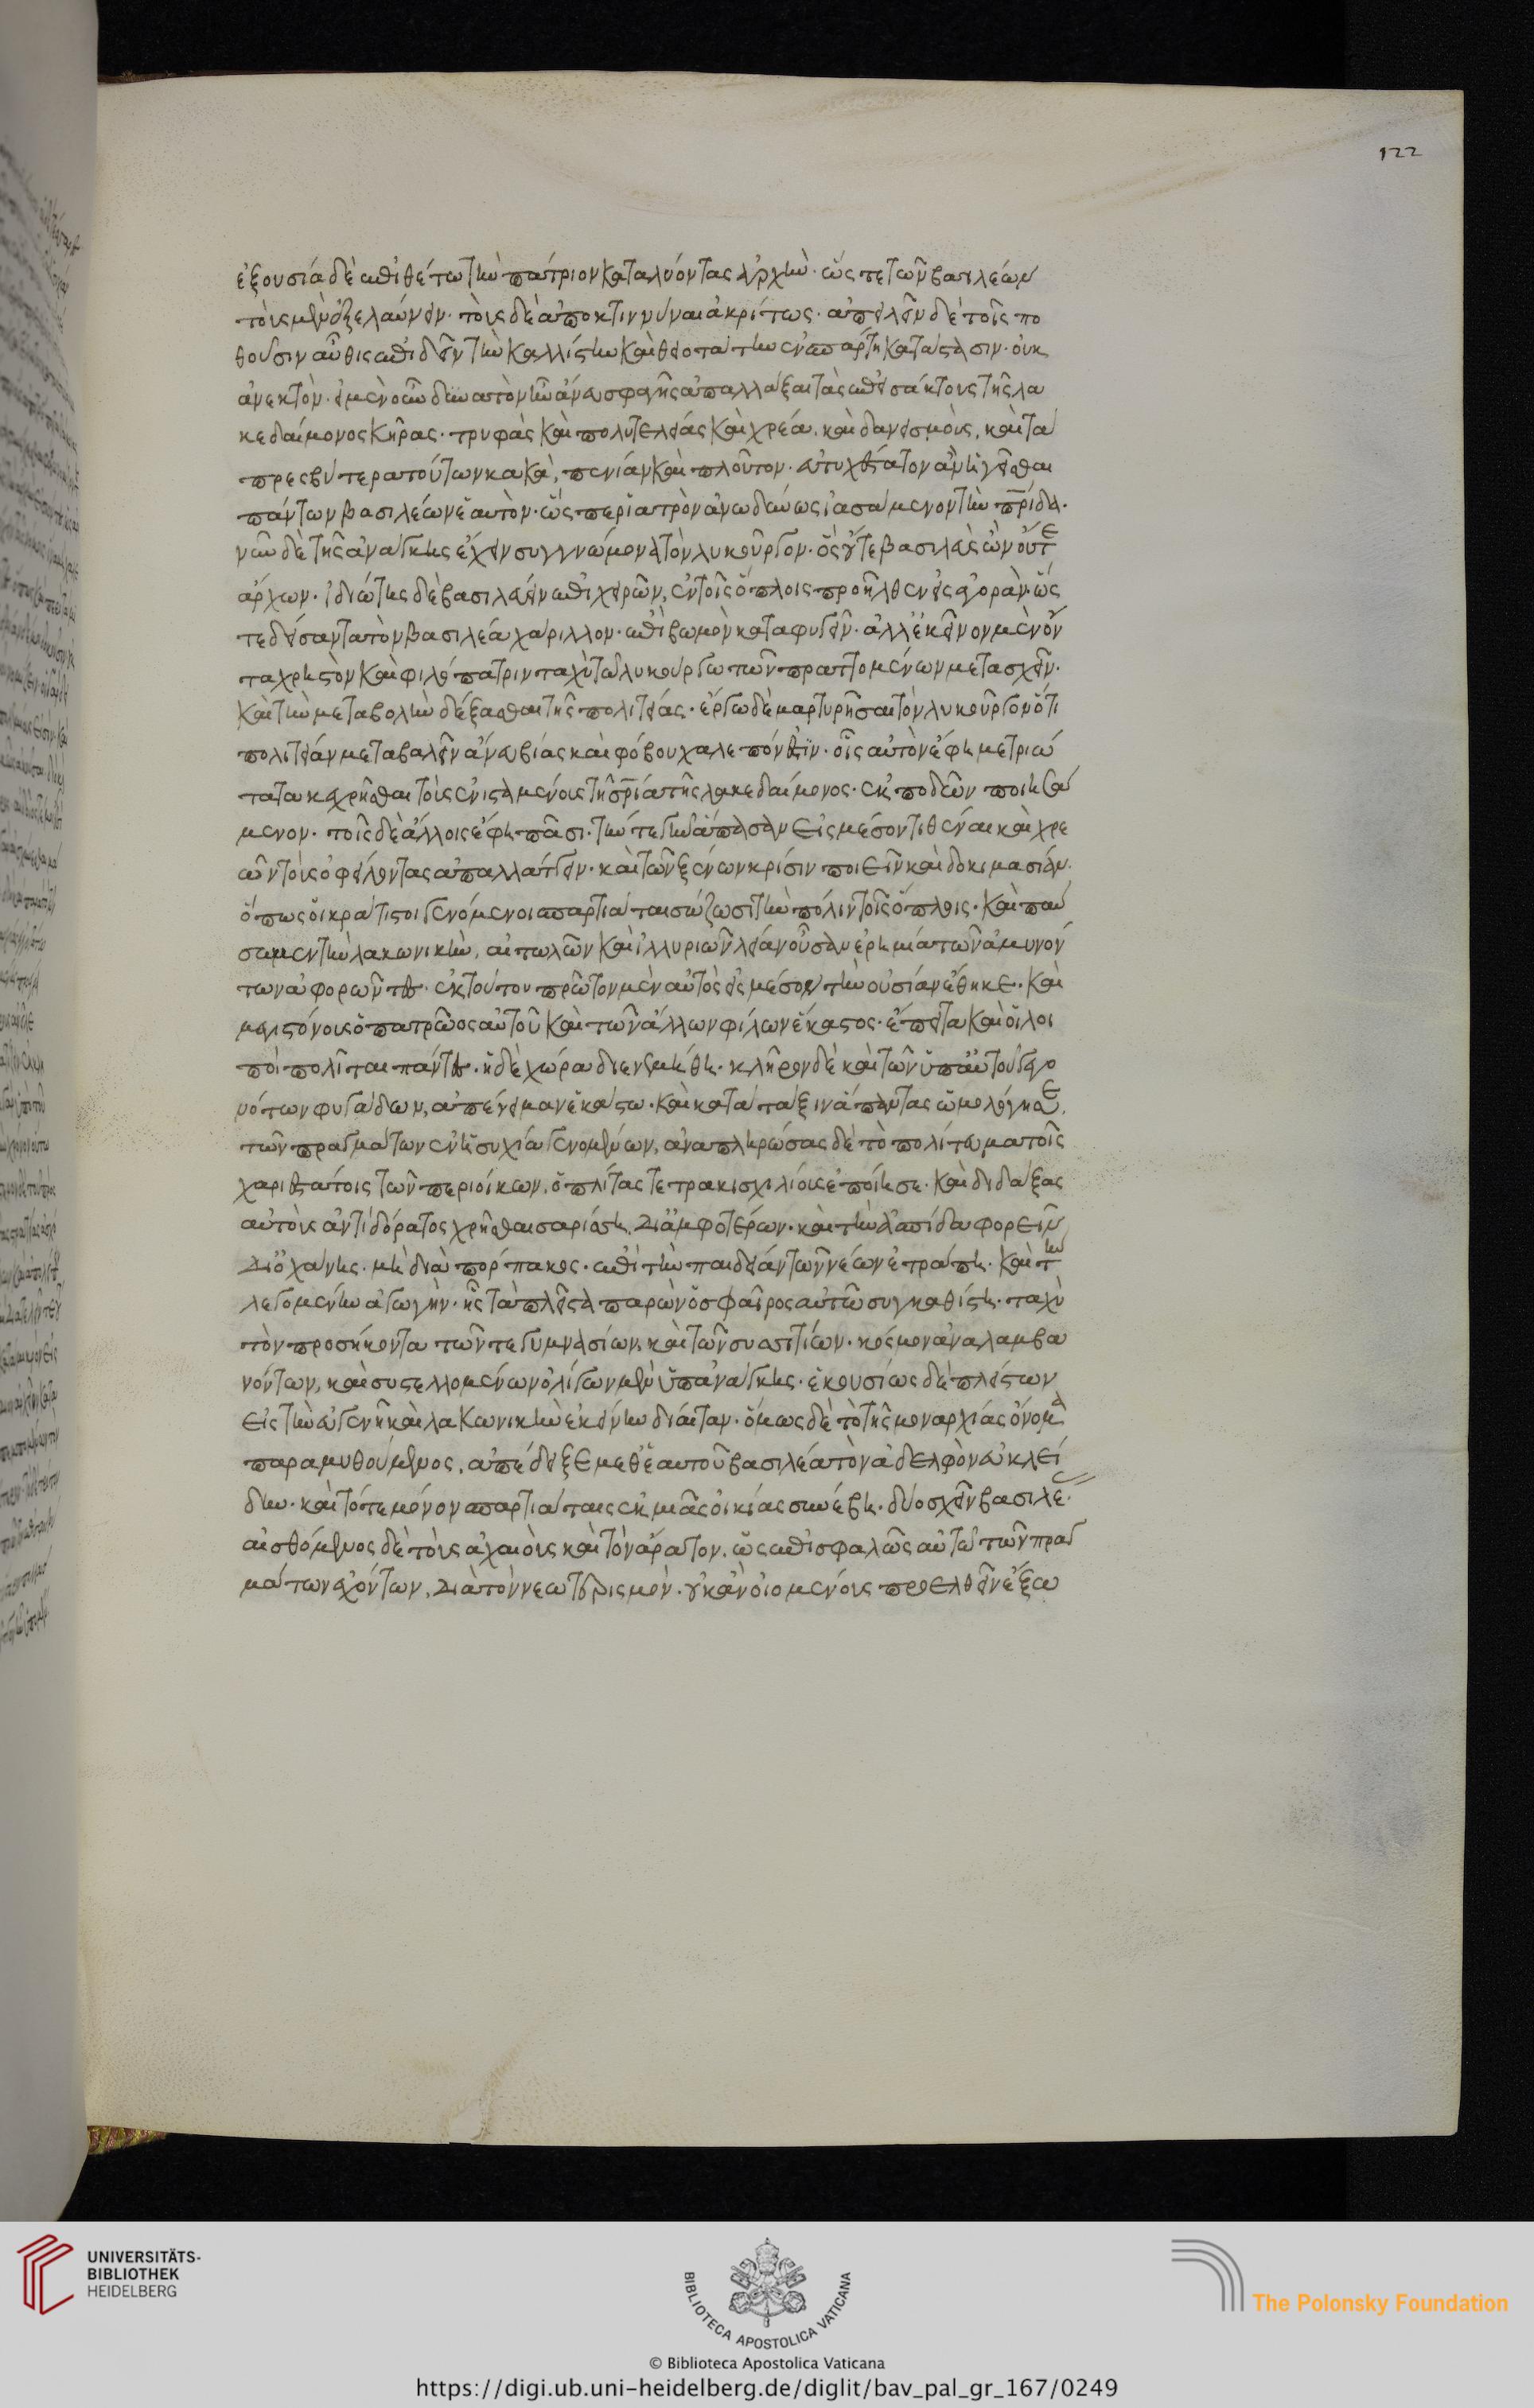 122
ἐξουσία δὲ ἐπιθέτω τὴν πάτριον καταλύοντας ἀρχὴν· ὥς τε τῶν βασιλέων
τοὺς μὲν ἐξελαύνειν· τοὺς δὲ ἀποκτιννύναι ἀκρίτως· ἀπειλεῖν δὲ τοῖς πο
θοῦσιν αὖθις ἐπιδεῖν τὴν καλλίστην καὶ θειοτάτην ἐν σπάρτη κατάστασιν· οὐκ
ἀνεκτὸν· εἰ μὲν οὖν δυνατὸν ἦν ἄνευ σφαγῆς ἀπαλλάξαι τὰς ἐπεισάκτους τῆς λα
κεδαίμονος κῆρας· τρυφὰς καὶ πολυτελείας καὶ χρέα, καὶ δανεισμοὺς, καὶ τὰ
πρεσβύτερα τούτων κακὰ, πενίαν καὶ πλοῦτον· εὐτυχέστατον ἂν ἡγεῖσθαι
πάντων βασιλέων ἑαυτὸν· ὥσπερ ἰατρὸν ἀνωδύνως ἰασάμενον τὴν πρίδα·
νῦν δὲ τῆς ἀνάγκης ἔχειν συγγνώμονα τὸν λυκοῦργον· ὃς οὔτε βασιλεὺς ὢν οὔτε
ἄρχων· ἰδιώτης δὲ βασιλεύειν ἐπιχειρῶν, ἐν τοῖς ὅπλοις προῆλθεν εἰς ἀγορὰν· ὥς
τε δείσαντα τὸν βασιλέα χάριλλον· ἐπὶ βωμὸν καταφυγεῖν· ἀλλ' ἐκεῖνον μὲν ὄν
τα χρηστὸν καὶ φιλόπατριν ταχὺ τῶ λυκούργω τῶν πραττομένων μετασχεῖν·
καὶ τὴν μεταβολὴν δέξασθαι τῆς πολιτείας· ἔργω δὲ μαρτυρῆσαι τὸν λυκοῦργον ὅτι
πολιτείαν μεταβαλεῖν ἄνευ βίας καὶ φόβου χαλεπόν ἐστιν· οἷς αὐτὸν ἔφη μετριώ
τατα κεχρῆσθαι τοὺς ἐνισταμένους τῆ σρία τῆς λακεδαίμονος· ἐκποδὼν ποιησά
μενον· τοῖς δὲ ἄλλοις ἔφη πᾶσι· τήν τε γῆν ἅπασαν εἰς μέσον τιθέναι καὶ χρε
ῶν τοὺς ὀφείλοντας ἀπαλλάττειν· καὶ τῶν ξένων κρίσιν ποιεῖν καὶ δοκιμασίαν·
ὅπως οἱ κράτιστοι γενόμενοι σπαρτιάται σώζωσι τὴν πόλιν τοῖς ὅπλοις· καὶ παύ
σωμεν τὴν λακωνικὴν, αἰτωλῶν καὶ ἰλλυριῶν λείαν οὖσαν ἐρημία τῶν ἀμυνόν
των ἀφορῶντες· ἐκ τούτου πρῶτον μὲν αὐτὸς εἰς μέσον τὴν οὐσίαν ἔθηκε· καὶ
μεγιστόνους ὁ πατρῶος αὐτοῦ καὶ τῶν ἄλλων φίλων ἕκαστος· ἔπειτα καὶ οἱ λοι
ποὶ πολῖται πάντες· ἡ δὲ χώρα διενεμήθη· κλῆρον δὲ καὶ τῶν ὑπ' αὐτοῦ γεγο
νότων φυγάδων, ἀπένειμαν ἑκάστω· καὶ κατάταξιν ἅπαντας ὡμολόγησε,
τῶν πραγμάτων ἐν ἡσυχία γενομένων, ἀναπληρώσας δὲ τὸ πολίτευμα τοῖς
χαριεστάτοις τῶν περιοίκων, ὁπλίτας τετρακισχιλίους ἐποίησε· καὶ διδάξας
αὐτοὺς ἀντὶ δόρατος χρῆσθαι σαρίση, δι' ἀμφοτέρων· καὶ τὴν ἀσπίδα φορεῖν
δι' ὀχάνης· μὴ διὰ πόρπακος· ἐπὶ τὴν παιδείαν τῶν νέων ἐτράπη· καὶ τὴν
λεγομένην ἀγωγὴν· ἧς τὰ πλεῖστα παρὼν ὁ σφαῖρος αὐτῶ συγκαθίστη· ταχὺ
τὸν προσήκοντα τῶν τε γυμνασίων, καὶ τῶν συσσιτίων· κόσμον ἀναλαμβα
νόντων, καὶ συστελλομένων ὀλίγων μὲν ὑπ' ἀνάγκης· ἑκουσίως δὲ πλείστων
εἰς τὴν εὐγενῆ καὶ λακωνικὴν ἐκείνην δίαιταν· ὅμως δὲ τὸ τῆς μοναρχίας ὄνομα
παραμυθούμενος, ἀπέδειξε μεθ' ἑαυτοῦ βασιλέα τὸν ἀδελφὸν εὐκλεί
δην· καὶ τότε μόνον σπαρτιάταις ἐκ μιᾶς οἰκίας συνέβη· δύο σχεῖν βασιλέ·
αἰσθόμενος δὲ τοὺς ἀχαιοὺς καὶ τὸν ἄρατον, ὡς ἐπισφαλῶς αὐτῶ τῶν πραγ
μάτων ἐχόντων, διὰ τὸν νεωτερισμὸν· οὐκ ἂν οἰομένοις προελθεῖν ἔξω
UNIVERSITÄTS-
BIBLIOTHEK
HEIDELBERG
BIBLIOTECA APOSTOLICA VATICANA
The Polonsky Foundation
© Biblioteca Apostolica Vaticana
https://digi.ub.uni-heidelberg.de/diglit/bav_pal_gr_167/0249